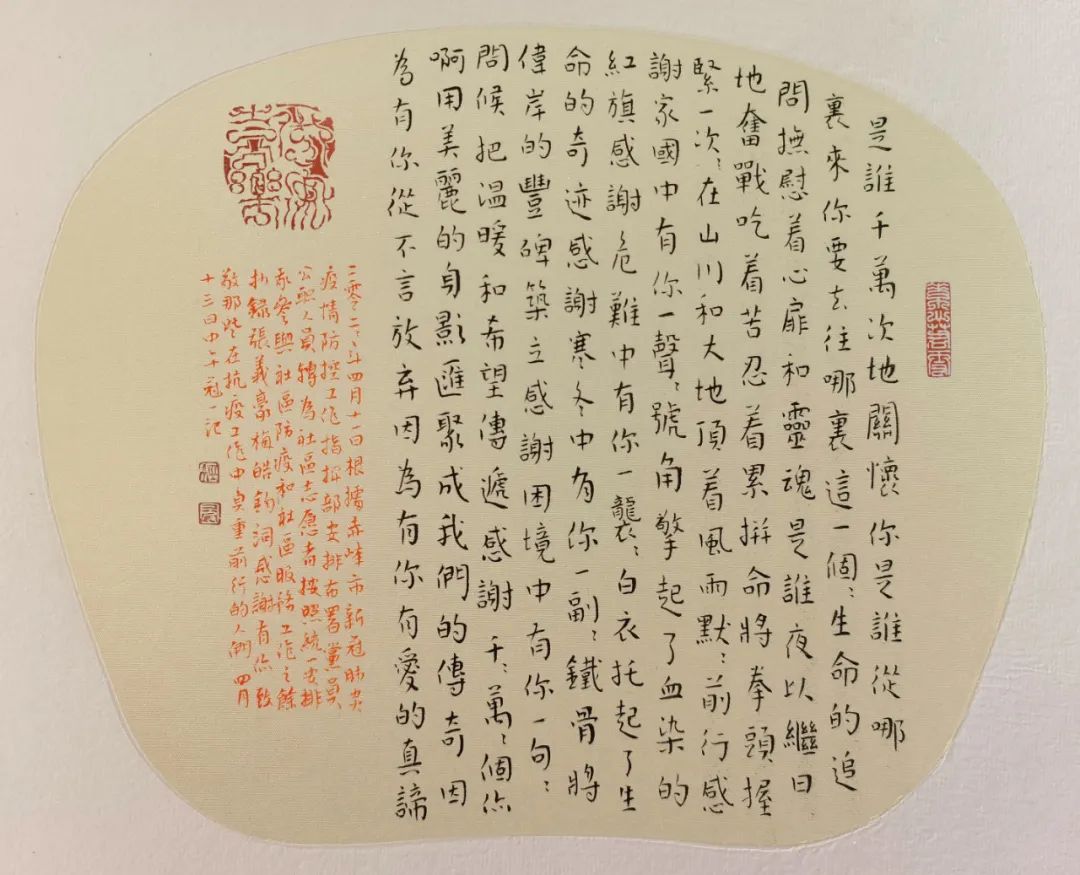 是誰千萬次地關懷你是誰從哪
裏來你要去往哪裏這一個〻生命的追
問撫慰着心扉和靈魂是誰夜以繼日
地奮戰吃着苦忍着累拼命將拳頭握
緊一次〻在山川和大地頂着風雨默〻前行感
謝家國中有你一聲〻號角擎起了血染的
紅旗感謝危難中有你一襲〻白衣托起了生
命的奇迹感謝寒冬中有你一副〻鐵骨將
偉岸的豐碑築立感謝困境中有你一句〻
問候把温暖和希望傳遞感謝千〻萬〻個你
啊用美麗的身影匯聚成我們的傳奇因
為有你從不言放弃因為有你有愛的真諦
二零二二年四月十一日根據赤峰市新冠肺炎
疫情防控工作指揮部安排布署黨員
公職人員轉為社區志愿者按照統一安排
我參與社區防疫和社區服務工作之餘
抄錄張義豪梅皓鈞詞感謝有你致
敬那些在抗疫工作中負重前行的人們四月
十三日中午冠一記